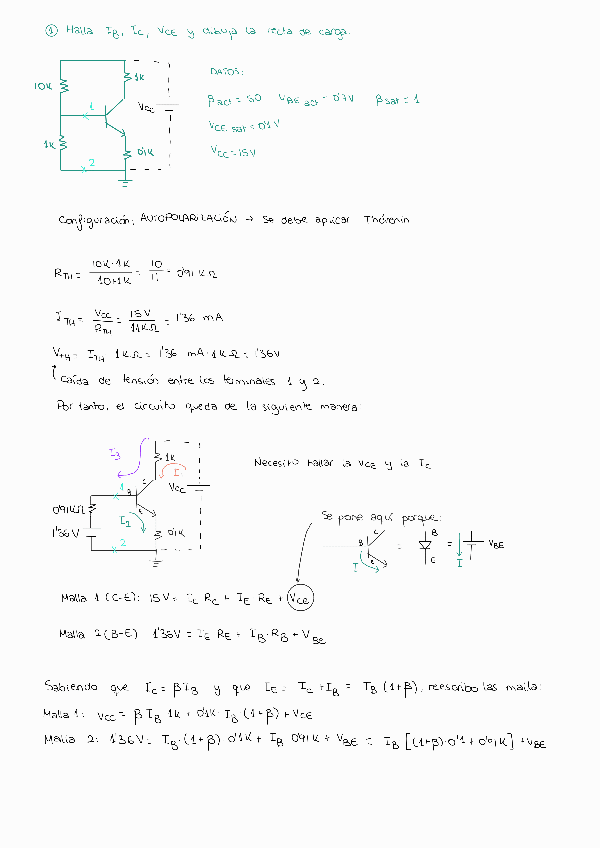 ① Halla IB, IC, VCE y dibuja la recta de carga.
10K
1K
1
VCC
1K
2
0'1K
DATOS:
β act = 50 VBE act = 0'7V β sat = 1
VCE sat = 0'1 V
VCC = 15V
Configuración: AUTOPOLARIZACIÓN → Se debe aplicar Thévenin
RTH = 10K·1K / 10+1K = 10 / 11 = 0'91 KΩ
ITH = VCC / RTH = 15V / 11KΩ = 1'36 mA
VTH = ITH 1KΩ = 1'36 mA·1KΩ = 1'36V
↑ Caída de tensión entre los terminales 1 y 2.
Por tanto, el circuito queda de la siguiente manera:
I3
1K
I
C
1
B
VCC
0'91KΩ
I2
1'36V
0'1K
2
Necesito hallar la VCE y la IC
Se pone aquí porque:
B C e I = B C = I VBE
Malla 1 (C-E): 15V = IC RC + IE RE + VCE
Malla 2 (B-E) 1'36V = IE RE + IB·RB + VBE
Sabiendo que IC = β·IB y que IE = IC + IB = IB (1+β), reescribo las malla:
Malla 1: VCC = β IB 1K + 0'1K·IB (1+β) + VCE
Malla 2: 1'36V = IB·(1+β) 0'1K + IB 0'91K + VBE = IB [(1+β)·0'1 + 0'91K] + VBE